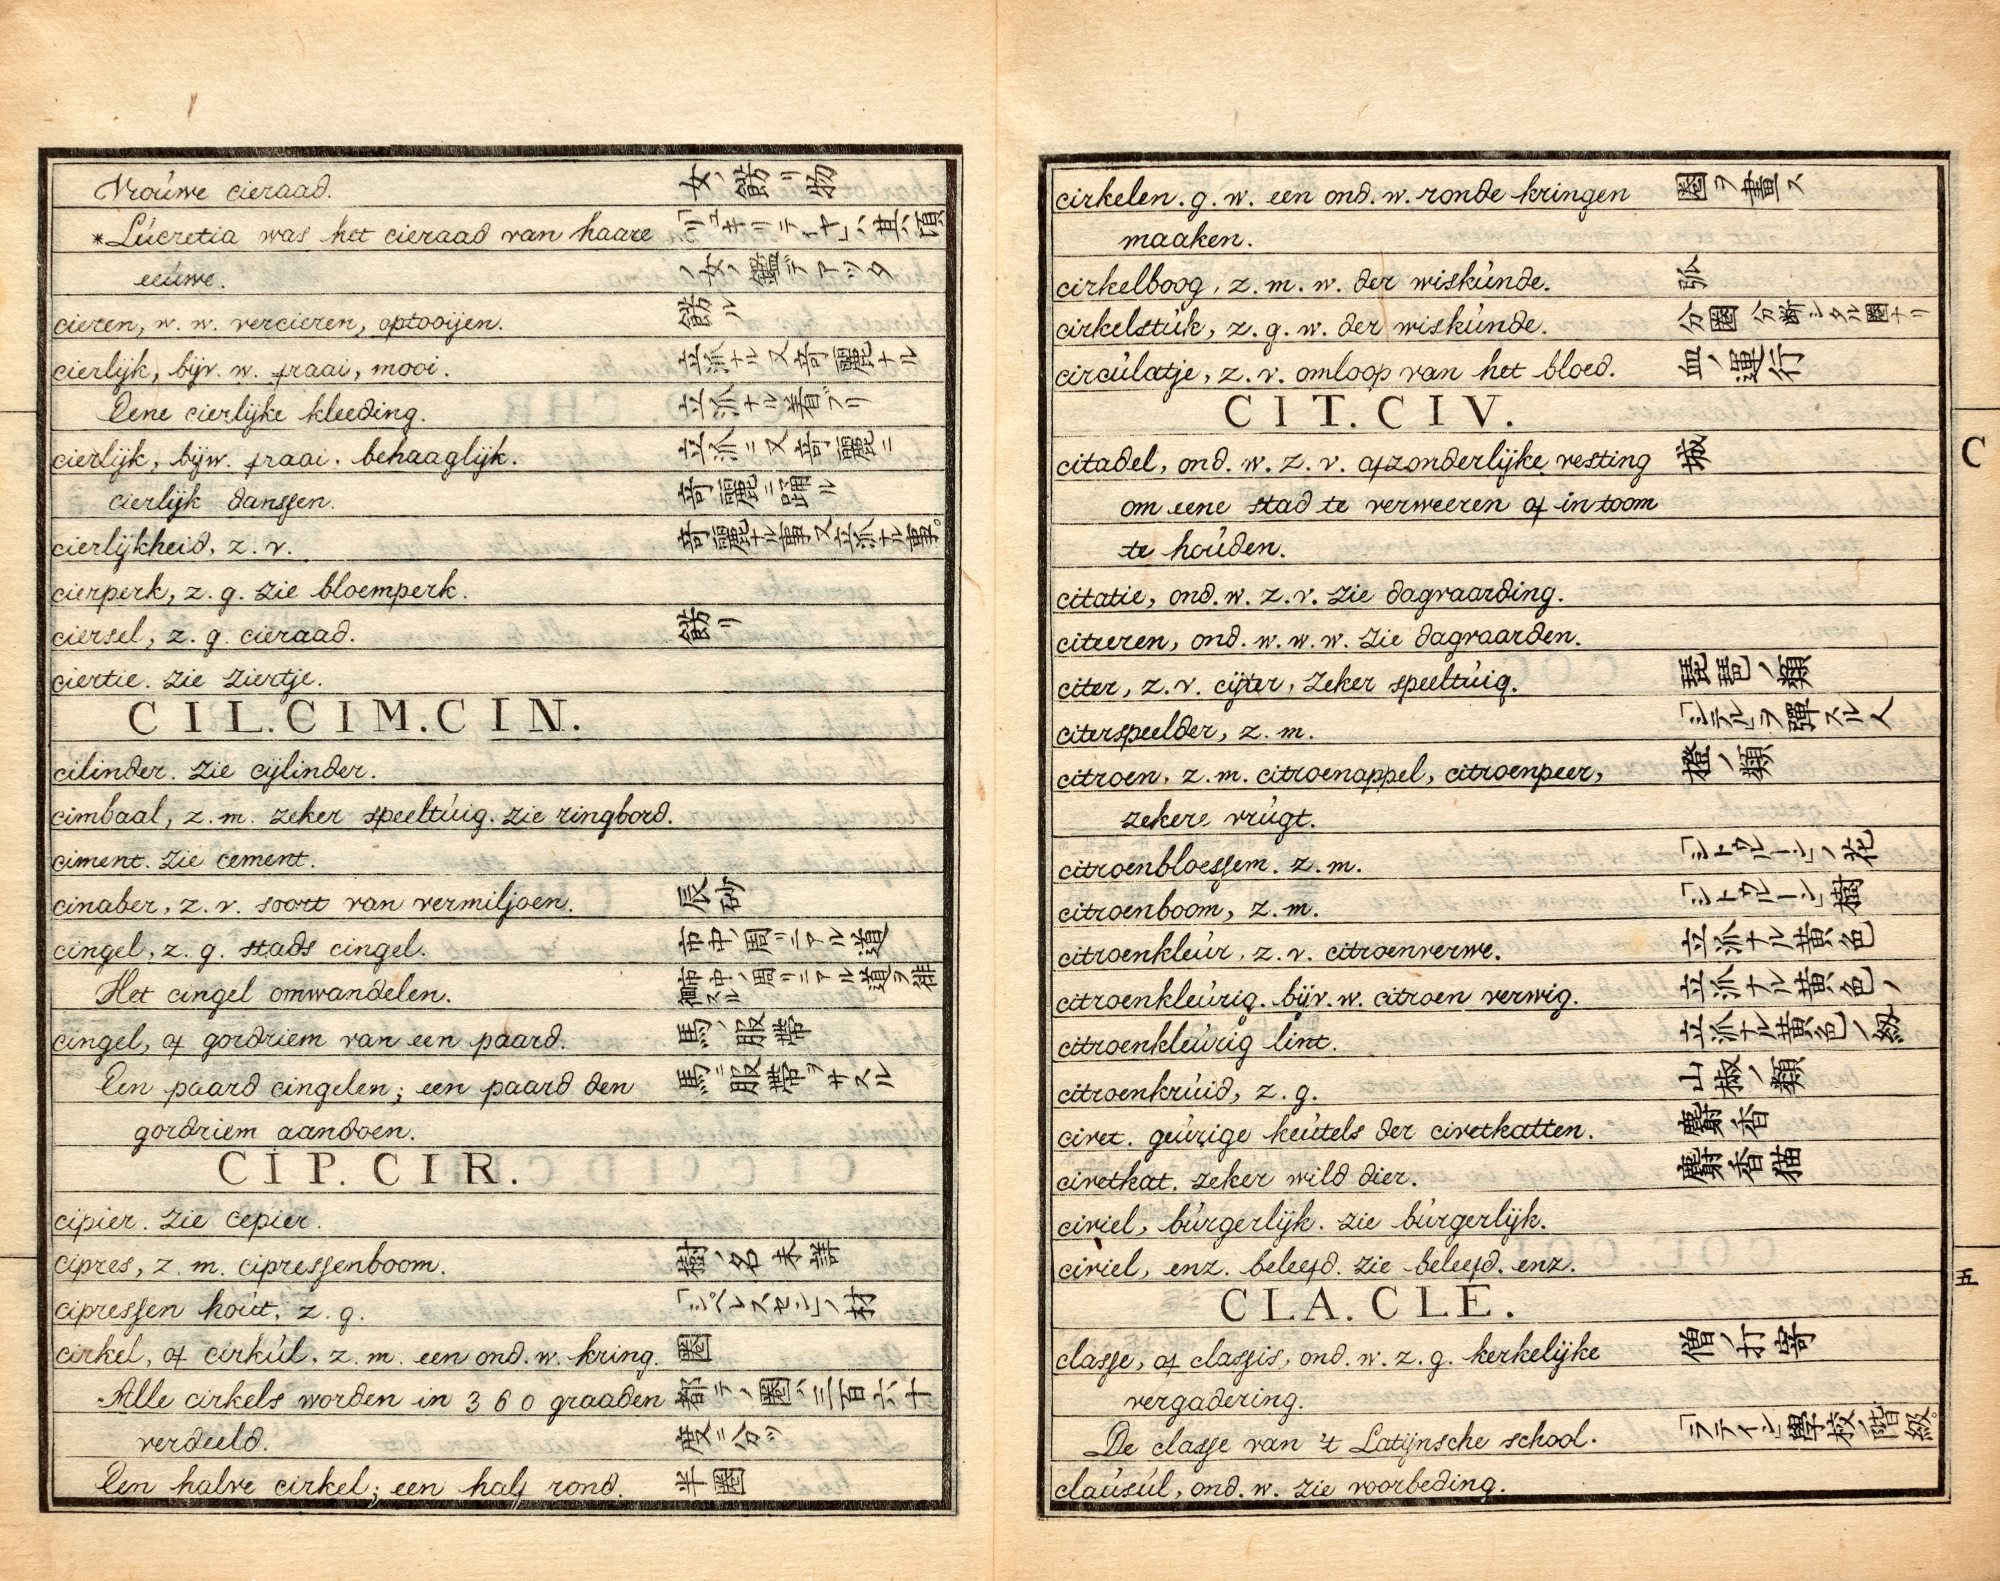 Vrouwe cieraad. 女ノ餝リ物
*Lúcretia was het cieraad van haare 「リュキリーティヤ」ハ其ノ頃
eeúwe. ノ女ノ鑑デアツタ
cieren, w. w. vercieren, optooijen. 餝ル
cierlijk, bijv. w. fraai, mooi. 立派ナル又奇麗ナル
Eene cierlijke kleeding. 立派ナル着ブリ
cierlijk, bijw. fraai. behaaglijk. 立派ニ又奇麗ニ
cierlijk danssen. 奇麗ニ踊ル
cierlijkheid, z. v. 奇麗ナル事又立派ナル事。
cierperk, z. g. zie bloemperk.
ciersel, z. g. cieraad. 餝リ
ciertie. zie ziertje.
CIL.CIM.CIN.
cilinder. zie cijlinder.
cimbaal, z. m. zeker speeltúig. zie ringbord.
ciment. zie cement.
cinaber, z. v. soort van vermiljoen. 辰砂
cingel, z. g. stads cingel. 市中ノ周リニアル道
Het cingel omwandelen. 市中ノ周リニアル道ヲ徘徊スル
cingel, of gordriem van een paard. 馬ノ服帯
Een paard cingelen; een paard den 馬ニ服帯ヲサスル
gordriem aandoen.
CIP. CIR.
cipier. zie cepier.
cipres, z. m. cipressenboom. 樹ノ名未詳
cipressen hoút, z. g. 「シペレスセン」ノ材
cirkel, of cirkúl, z. m. een ond. w. kring. 圏
Alle cirkels worden in 360 graaden 都テノ圏ハ三百六十
verdeeld. 度ニ分ツ
Een halve cirkel; een half rond. 半圏
cirkelen. g. w. een ond. w. ronde kringen 圏ヲ畫ス
maaken.
cirkelboog, z. m. w. der wiskúnde. 弧
cirkelstúk, z. g. w. der wiskúnde. 分圏 分断シタル圏ナリ
circúlatje, z. v. omloop van het bloed. 血ノ運行
CIT. CIV.
citadel, ond. w. z. v. afzonderlijke vesting 城
om eene stad te verweeren of in toom
te hoúden.
citatie, ond. w. z. v. zie dagvaarding.
citeeren, ond. w. w. w. zie dagvaarden.
citer, z. v. cijter, zeker speeltúig. 琵琶ノ類
citerspeelder, z. m. 「シテル」ヲ彈スル人
citroen, z. m. citroenappel, citroenpeer, 橙ノ類
zekere vrúgt.
citroenbloessem. z. m. 「シトウルーン」ノ花
citroenboom, z. m. 「シトウルーン」樹
citroenkleúr, z. v. citroenverwe. 立派ナル黄色
citroenkleúrig. bijv. w. citroen verwig. 立派ナル黄色ノ
citroenkleúrig lint. 立派ナル黄色ノ紐
citroenkrúid, z. g. 山椒ノ類
civet. geúrige keútels der civetkatten. 麝香
civetkat. zeker wild dier. 麝香猫
civiel, búrgerlijk. zie búrgerlijk.
civiel, enz. beleefd. zie beleefd. enz.
CLA. CLE.
classe, of classis, ond. w. z. g. kerkelijke 僧ノ打寄
vergadering.
De classe van 't Latijnsche school. 「ラティン」學校ノ階級。
claúsúl, ond. w. zie voorbeding.
C
五